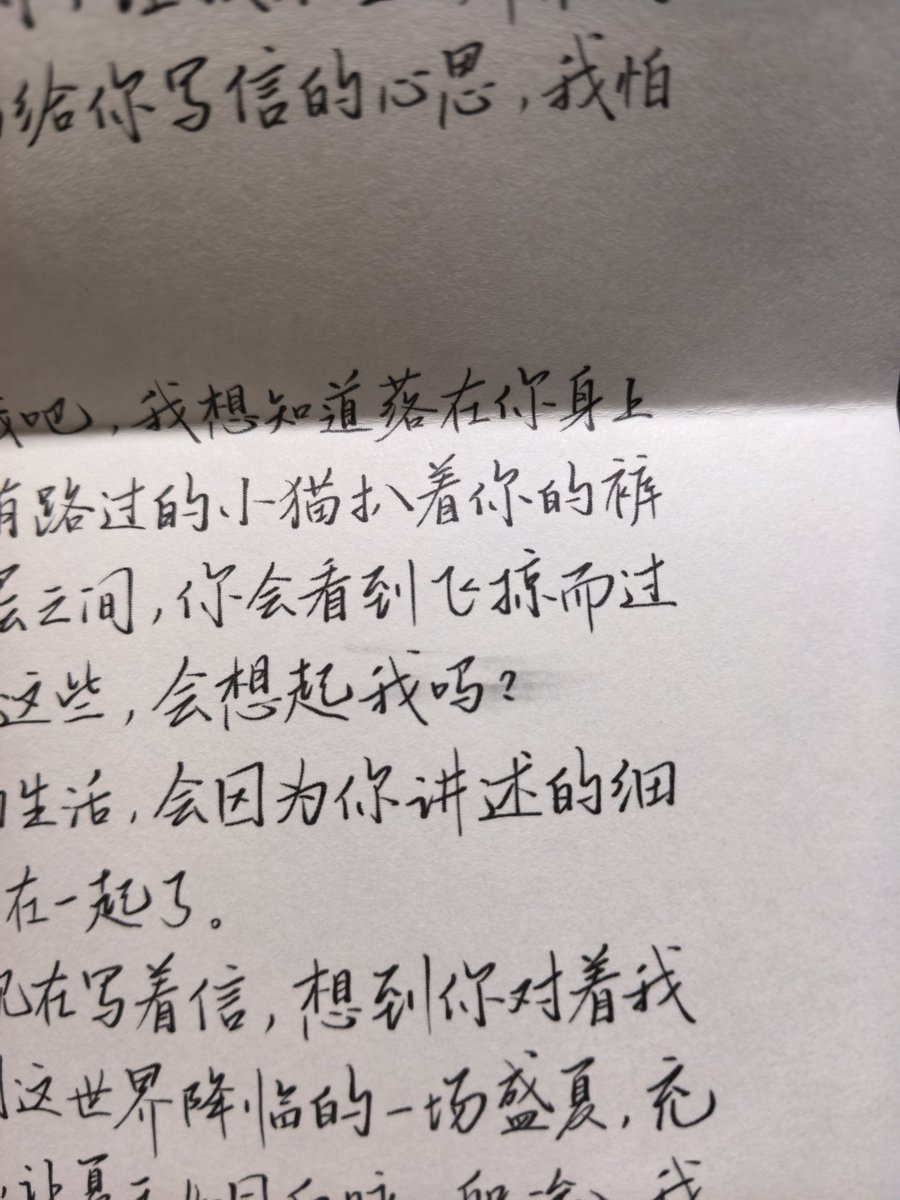 给你写信的心思，我怕
我吧，我想知道落在你身上
有路过的小猫扒着你的裤
层之间，你会看到飞掠而过
这些，会想起我吗？
生活，会因为你讲述的细
在一起了。
现在写着信，想到你对着我
这世界降临的一场盛夏，充